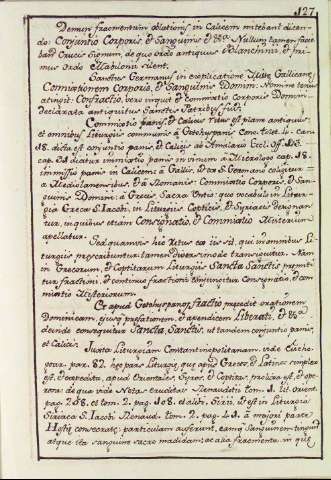 127
Demum fragmentum oblationis in Calicem mitebant dicen-
do: Conjuntio Corporis, & Sanguinis &ª Nullum tamen facie-
bant Crucis Signum, de quo ordo antiquus Blanchinii & pri-
mus ordo Mabilonii silent.
Sanctus Germanus in explicatione Missæ Gallicanæ
Comixtionem Corporis, & Sanguinis Domini Nomine tenus
atingit. Confractio, vero inquit & comixtio Corporis Domini
declarata antiquitus Sanctis Patribus fuit.
Commixtio panis, & Calicis Ritus est plane antiquus
et omnibus Liturgiis communis à Gothis panis Conc. Tolet. 4. Can.
18. dicta est conjuntio panis, & Calicis ab Amalario Eccl. Off.
cap. 31 dicitur immixtio panis in vinum à Micrologo cap. 18.
immissio panis in Calicem: à Gallis, et à S. Germano colitur
à Mediolanensibus, & à Romanis: Commixtio Corporis, & San-
guinis Domini: à Græcis Sacra Unio: quo vocabulo in Litur-
gia Græca S. Jacobi, in Liturgiis Copticis, & Syriacis designan-
tur, in quibus etiam Consignatio, & Commixtio Misteriorum
apellatur.
Sed quamvis hic Ritus ex iis sit, qui in omnibus Li-
turgiis prescribuntur: tamen diverso modo transigitur. Nam
in Græcorum, & Coptitarum Liturgiis Sancta Sanctis premiti-
tur fractioni, & continuo fractionis conjungitur Consignatio, & com-
mixtio Misteriorum.
At apud Gothispanos fractio præcedit orationem
Dominicam, ejusq. prefationem, & apendicem Liberati, & ª
deinde consequitur Sancta, Sanctis, ut tandem conjuntio panis,
et Calicis.
Juxta Liturgiam Constantinopolitanam, vide Eucho-
pag. 82. hæc pars Liturgiæ, que apud Græcos, & Latinos simplex
est, & expedita, apud Orientales Syros, & Coptitas, prolixa est, & ope-
rosa: de qua vide Notas eruditas Renaudotii tom. 1. Lit. Orient.
pag. 258. et tom. 2. pag. 108. et alibi. Sirii, & est in Liturgia
Siriaca S. Jacobi Renaud. tom. 2. pag. 41. à majori parte
Hostiæ consecratæ: particulam auferunt, eamq. Sanguinem tingunt
atque ita sanguine sacro madidam, ac alia fragmenta in quæ